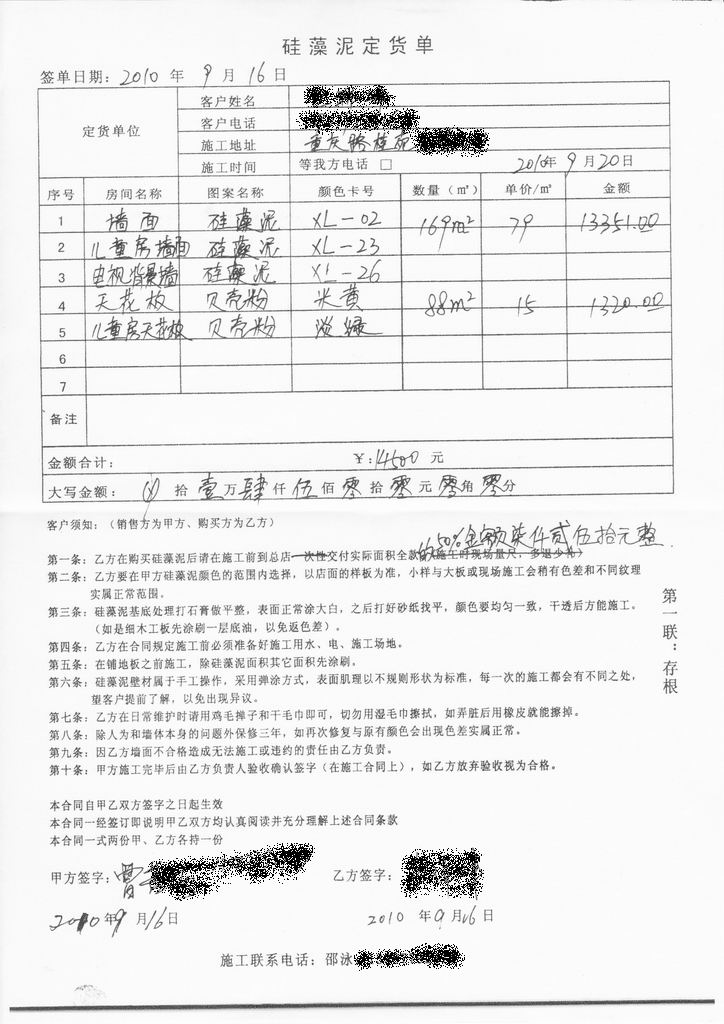 硅藻泥定货单
签单日期：2010 年 9 月 16 日
定货单位
客户姓名
客户电话
施工地址 重庆路桂苑
施工时间 等我方电话 □ 2010年 9 月 20 日
序号 房间名称 图案名称 颜色卡号 数量（㎡） 单价/㎡ 金额
1 墙面 硅藻泥 XL-02 169m² 79 13351.00
2 儿童房墙面 硅藻泥 XL-23
3 电视背景墙 硅藻泥 XL-26
4 天花板 贝壳粉 米黄 88m² 15 1320.00
5 儿童房天花板 贝壳粉 淡绿
6
7
备注
金额合计： ￥:14500 元
大写金额： 拾 壹 万 肆 仟 伍 佰 零 拾 零 元 零 角 零 分
客户须知：（销售方为甲方、购买方为乙方）
的50%金额柒仟贰伍拾元整
第一条：乙方在购买硅藻泥后请在施工前到总店一次性交付实际面积全款（施工时现场量尺，多退少补）
第二条：乙方要在甲方硅藻泥颜色的范围内选择，以店面的样板为准，小样与大板或现场施工会稍有色差和不同纹理
实属正常范围。
第三条：硅藻泥基底处理打石膏做平整，表面正常涂大白，之后打好砂纸找平，颜色要均匀一致，干透后方能施工。
（如是细木工板先涂刷一层底油，以免返色差）。
第四条：乙方在合同规定施工前必须准备好施工用水、电、施工场地。
第五条：在铺地板之前施工，除硅藻泥面积其它面积先涂刷。
第六条：硅藻泥壁材属于手工操作，采用弹涂方式，表面肌理以不规则形状为标准，每一次的施工都会有不同之处，
望客户提前了解，以免出现异议。
第七条：乙方在日常维护时请用鸡毛掸子和干毛巾即可，切勿用湿毛巾擦拭，如弄脏后用橡皮就能擦掉。
第八条：除人为和墙体本身的问题外保修三年，如再次修复与原有颜色会出现色差实属正常。
第九条：因乙方墙面不合格造成无法施工或违约的责任由乙方负责。
第十条：甲方施工完毕后由乙方负责人验收确认签字（在施工合同上），如乙方放弃验收视为合格。
第一联：存根
本合同自甲乙双方签字之日起生效
本合同一经签订即说明甲乙双方均认真阅读并充分理解上述合同条款
本合同一式两份甲、乙方各持一份
甲方签字：曾 乙方签字：
2010年9月16日 2010 年9月16日
施工联系电话：邵泳